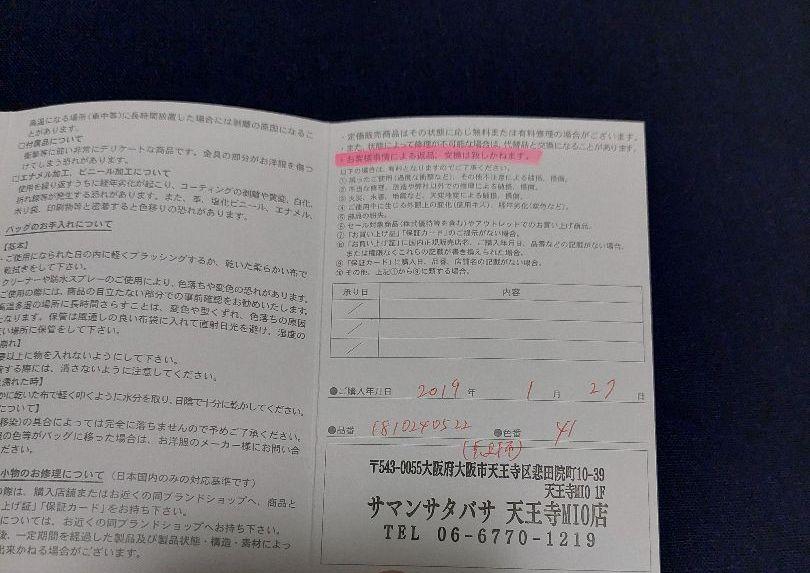 高温になる場所(車中等)に長時間放置した場合には剥離の原因になるこ
とがあります。
□付属品について
衝撃等に弱い非常にデリケートな商品です。金具の部分がお洋服を傷つ
けてしまう恐れがあります。
□エナメル加工、ビニール加工について
使用を繰り返すうちに経年劣化が起こり、コーティングの剥離や黄変、白化、
折れ線等が発生する恐れがあります。また、革、塩化ビニール、エナメル、
ポリ袋、印刷物等と密着すると色移りの恐れがあります。
バッグのお手入れについて
【基本】
・ご使用になられた日の内に軽くブラッシングするか、乾いた柔らかい布で
乾拭きをして下さい。
クリーナーや防水スプレーのご使用により、色落ちや変色の恐れがあります。
ご使用の際には、商品の目立たない部分での事前確認をお勧めいたします。
高温多湿の場所に長時間さらすことは、変色や型くずれ、色落ちの原因
となります。保管は風通しの良い布袋に入れて直射日光を避け、湿度の
い場所に保管をして下さい。
崩れ】
要以上に物を入れないようにして下さい。
する際には、潰さないように注意してください。
濡れた時】
かに乾いた布で軽く叩くように水分を取り、日陰で十分に乾かしてください。
について】
移染)の具合によっては完全に落ちませんので予めご了承ください。
の色等がバッグに移った場合は、お洋服のメーカー様にお問い合
ださい。
小物のお修理について(日本国内のみの対応基準です)
の際は、購入店舗またはお近くの同ブランドショップへ、商品と
上げ証」「保証カード」をお持ち下さい。
については、お近くの同ブランドショップへお持ち下さい。
後、一定期間を経過した製品及び製品状態・構造・素材によっ
出来かねる場合がございます。
・定価販売商品はその状態に応じ無料または有料修理の場合がございます。
・また、状態によって修理が不可能な場合は、代替品と交換になることがあります。
・お客様事情による返品、交換は致しかねます。
以下の場合は、有料となりますのでご了承ください。
①誤ったご使用(過度な衝撃など)、その他不注意による破損、損傷。
②不当な修理、改造や弊社以外での修理による破損、損傷。
③火災、水害、地震など、天変地変による破損、損傷。
④ご使用中に生じる外観上の変化(使用キズ)、経年劣化(変色など)。
⑤部品の紛失。
⑥セール対象商品(株式優待等を含む)やアウトレットでのお買い上げ商品。
⑦「お買い上げ証」「保証カード」のご提示がない場合。
⑧「お買い上げ証」に国内正規販売店名、ご購入年月日、品番などの記載がない場合、
または権限なくこれらの記載が書き換えられた場合。
⑨「保証カード」に購入日、品番、店舗名の記載がない場合。
⑩その他、上記①から⑨に類する場合。
承り日 内容
／
／
／
●ご購入年月日 2019 年 1 月 27 日
●品番 1810240522 ●色番 41
〒543-0055大阪府大阪市天王寺区悲田院町10-39
天王寺MIO 1F
サマンサタバサ 天王寺MIO店
TEL 06-6770-1219